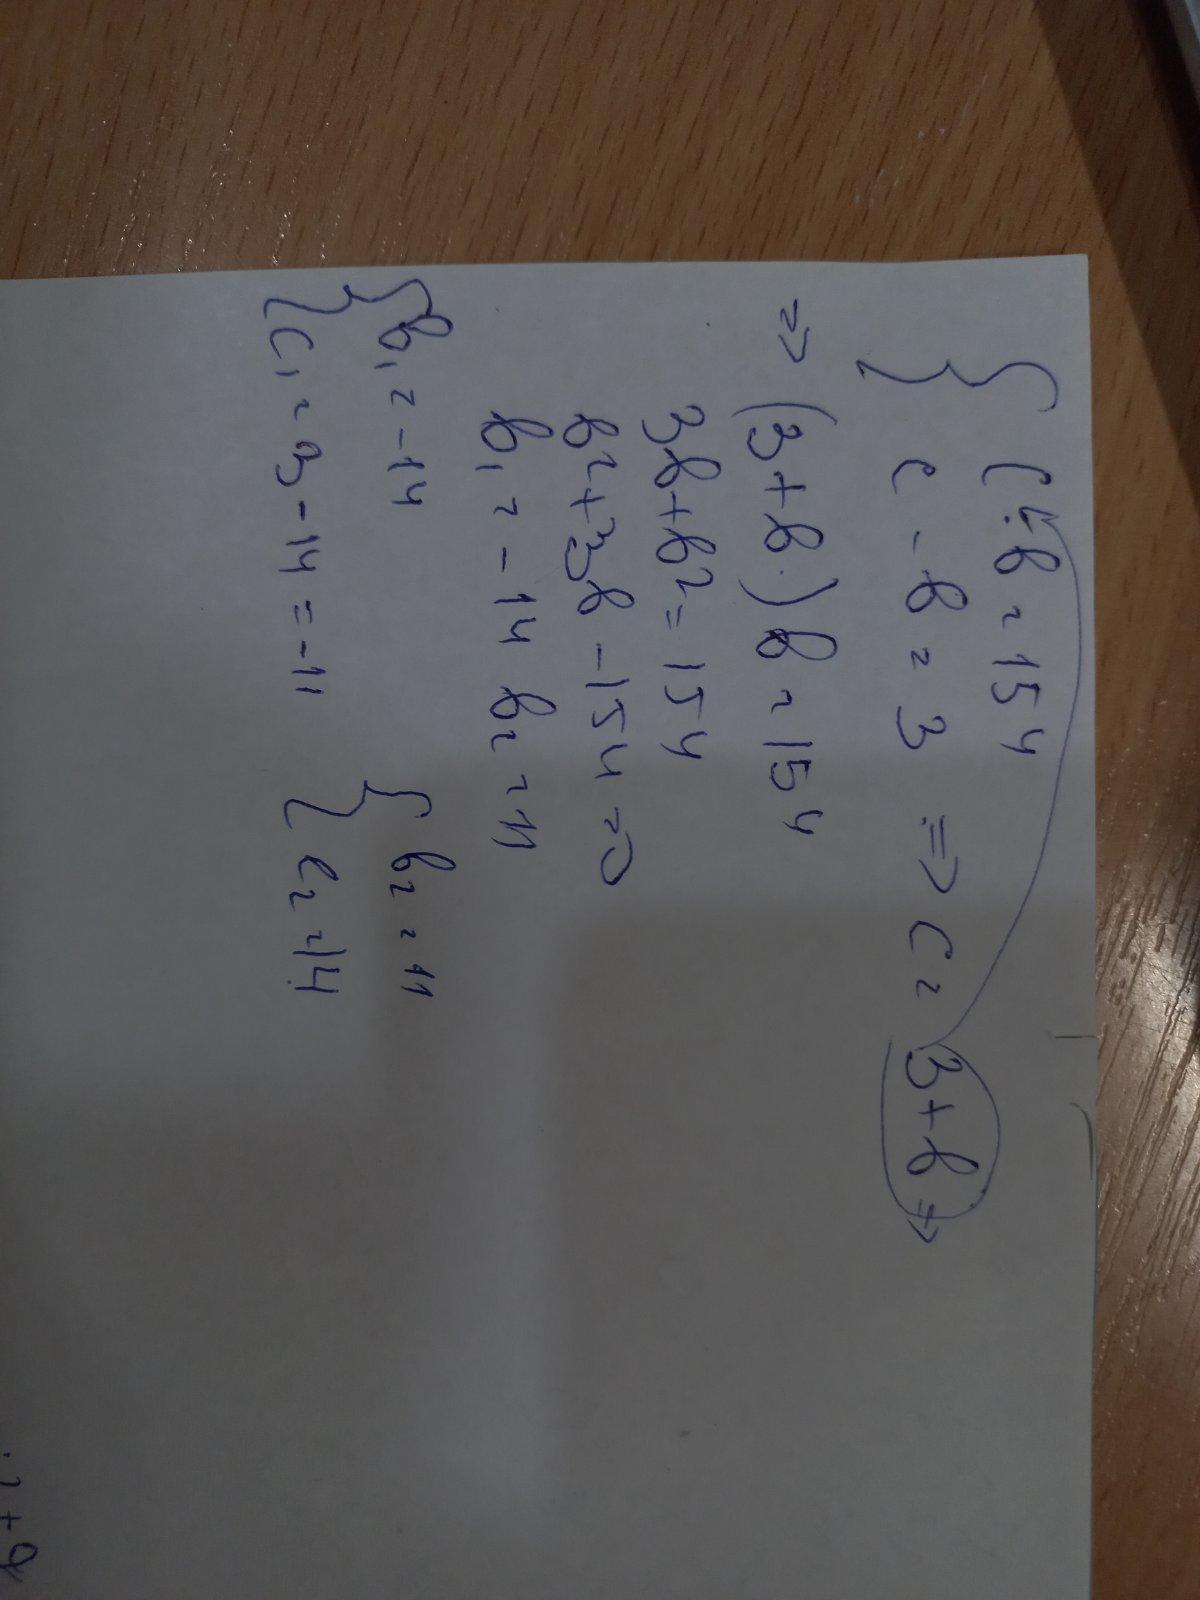 { c·b = 154
{ c - b = 3 => c = 3+b =>
=> (3+b)b = 154
3b+b² = 154
b²+3b-154=0
b₁ = -14 b₂ = 11
{ b₁ = -14 { b₂ = 11
{ c₁ = 3-14=-11 { c₂ = 14